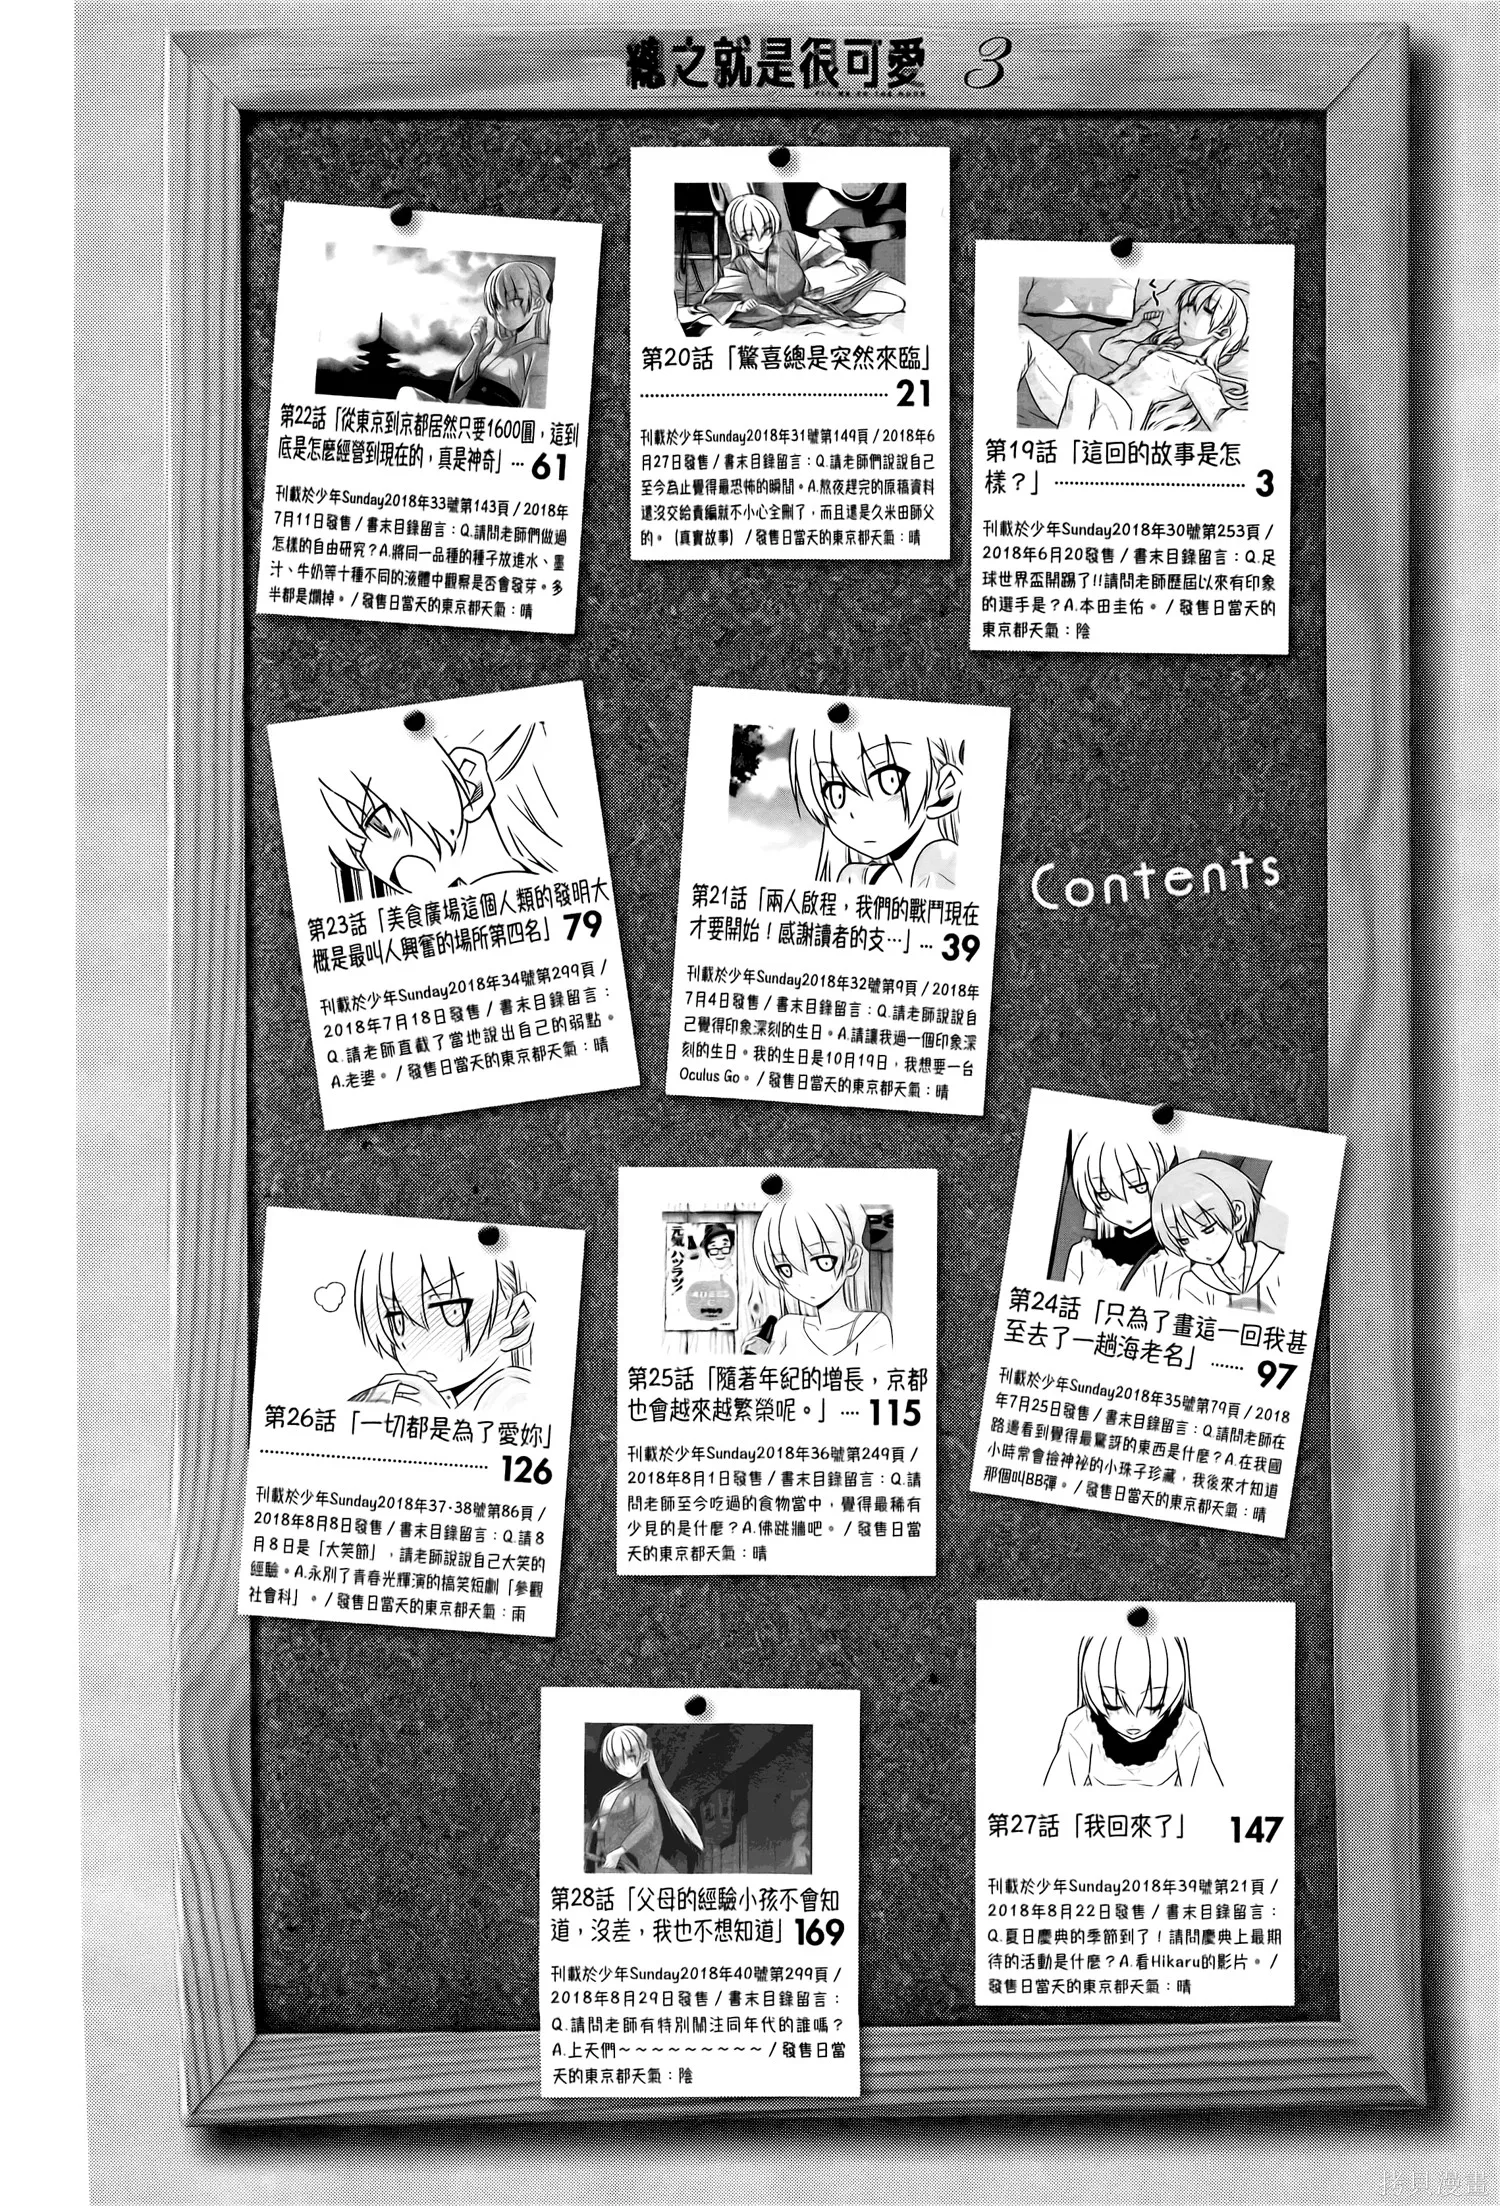 之就是很可愛 3
FLY ME TO THE MOON
Contents
第19話「這回的故事是怎
樣？」 3
刊載於少年Sunday2018年30號第253頁/
2018年6月20發售/書末目錄留言：Q.足
球世界盃開踢了!!請問老師歷屆以來有印象
的選手是？A.本田圭佑。/發售日當天的
東京都天氣：陰
第20話「驚喜總是突然來臨」
21
刊載於少年Sunday2018年31號第149頁/2018年6
月27日發售/書末目錄留言：Q.請老師們說說自己
至今為止覺得最恐怖的瞬間。A.熬夜趕完的原稿資料
還沒交給責編就不小心全刪了，而且還是久米田師父
的。（真實故事）/發售日當天的東京都天氣：晴
第22話「從東京到京都居然只要1600圓，這到
底是怎麼經營到現在的，真是神奇」… 61
刊載於少年Sunday2018年33號第143頁/2018年
7月11日發售/書末目錄留言：Q.請問老師們做過
怎樣的自由研究？A.將同一品種的種子放進水、墨
汁、牛奶等十種不同的液體中觀察是否會發芽。多
半都是爛掉。/發售日當天的東京都天氣：晴
第21話「兩人啟程，我們的戰鬥現在
才要開始！感謝讀者的支…」… 39
刊載於少年Sunday2018年32號第9頁/2018年
7月4日發售/書末目錄留言：Q.請老師說說自
己覺得印象深刻的生日。A.請讓我過一個印象深
刻的生日。我的生日是10月19日，我想要一台
Oculus Go。/發售日當天的東京都天氣：晴
第23話「美食廣場這個人類的發明大
概是最叫人興奮的場所第四名」79
刊載於少年Sunday2018年34號第299頁/
2018年7月18日發售/書末目錄留言：
Q.請老師直截了當地說出自己的弱點。
A.老婆。/發售日當天的東京都天氣：晴
第24話「只為了畫這一回我甚
至去了一趟海老名」…… 97
刊載於少年Sunday2018年35號第79頁/2018
年7月25日發售/書末目錄留言：Q.請問老師在
路邊看到覺得最驚訝的東西是什麼？A.在我國
小時常會撿神祕的小珠子珍藏，我後來才知道
那個叫BB彈。/發售日當天的東京都天氣：晴
元気ハツラツ!
第25話「隨著年紀的增長，京都
也會越來越繁榮呢。」…. 115
刊載於少年Sunday2018年36號第249頁/
2018年8月1日發售/書末目錄留言：Q.請
問老師至今吃過的食物當中，覺得最稀有
少見的是什麼？A.佛跳牆吧。/發售日當
天的東京都天氣：晴
第26話「一切都是為了愛妳」
126
刊載於少年Sunday2018年37·38號第86頁/
2018年8月8日發售/書末目錄留言：Q.請8
月8日是「大笑節」，請老師說說自己大笑的
經驗。A.永別了青春光輝演的搞笑短劇「參觀
社會科」。/發售日當天的東京都天氣：雨
第27話「我回來了」 147
刊載於少年Sunday2018年39號第21頁/
2018年8月22日發售/書末目錄留言：
Q.夏日慶典的季節到了！請問慶典上最期
待的活動是什麼？A.看Hikaru的影片。/
發售日當天的東京都天氣：晴
第28話「父母的經驗小孩不會知
道，沒差，我也不想知道」169
刊載於少年Sunday2018年40號第299頁/
2018年8月29日發售/書末目錄留言：
Q.請問老師有特別關注同年代的誰嗎？
A.上天們～～～～～～～～～/發售日當
天的東京都天氣：陰
拷貝漫畫